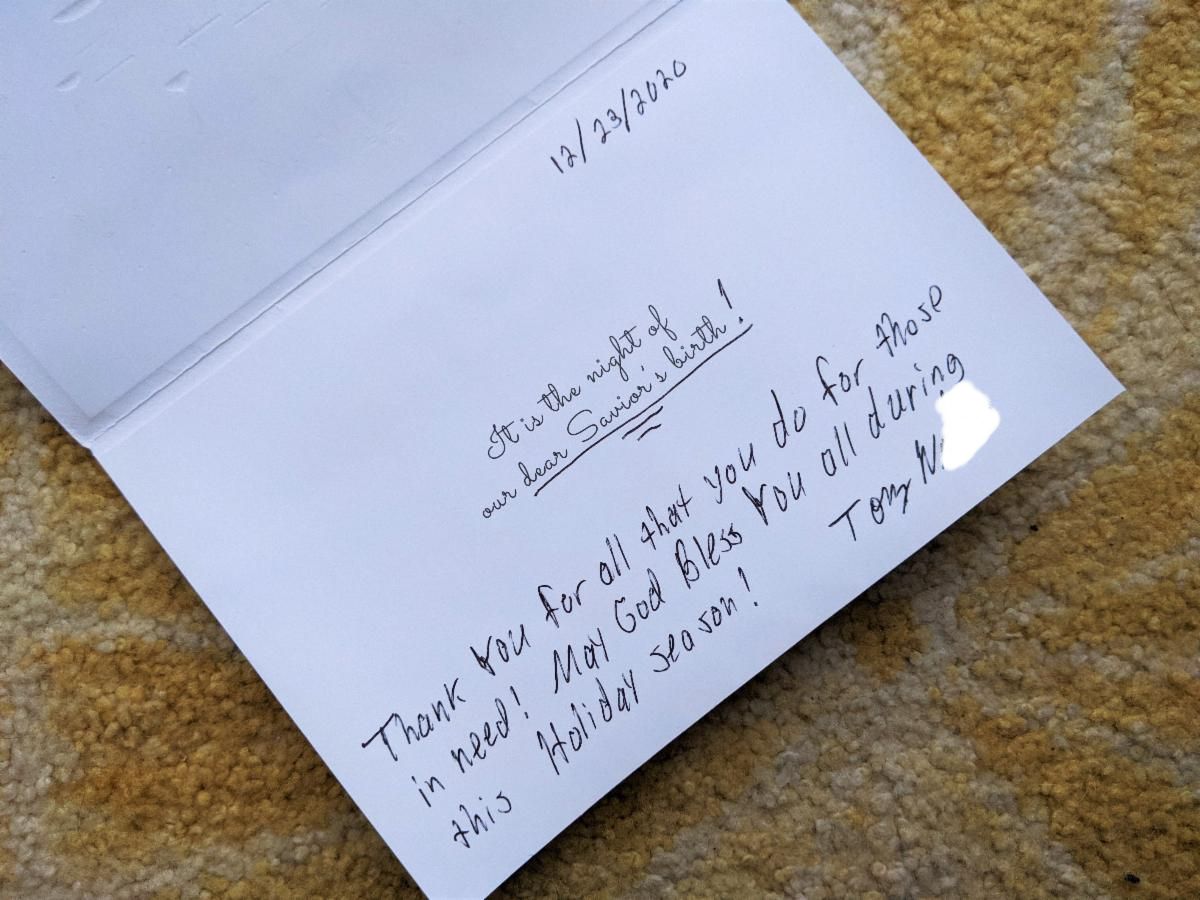 12/23/2020
It is the night of
our dear Savior's birth!
Thank You for all that you do for those
in need! May God Bless You all during
this Holiday season!
Tony N.